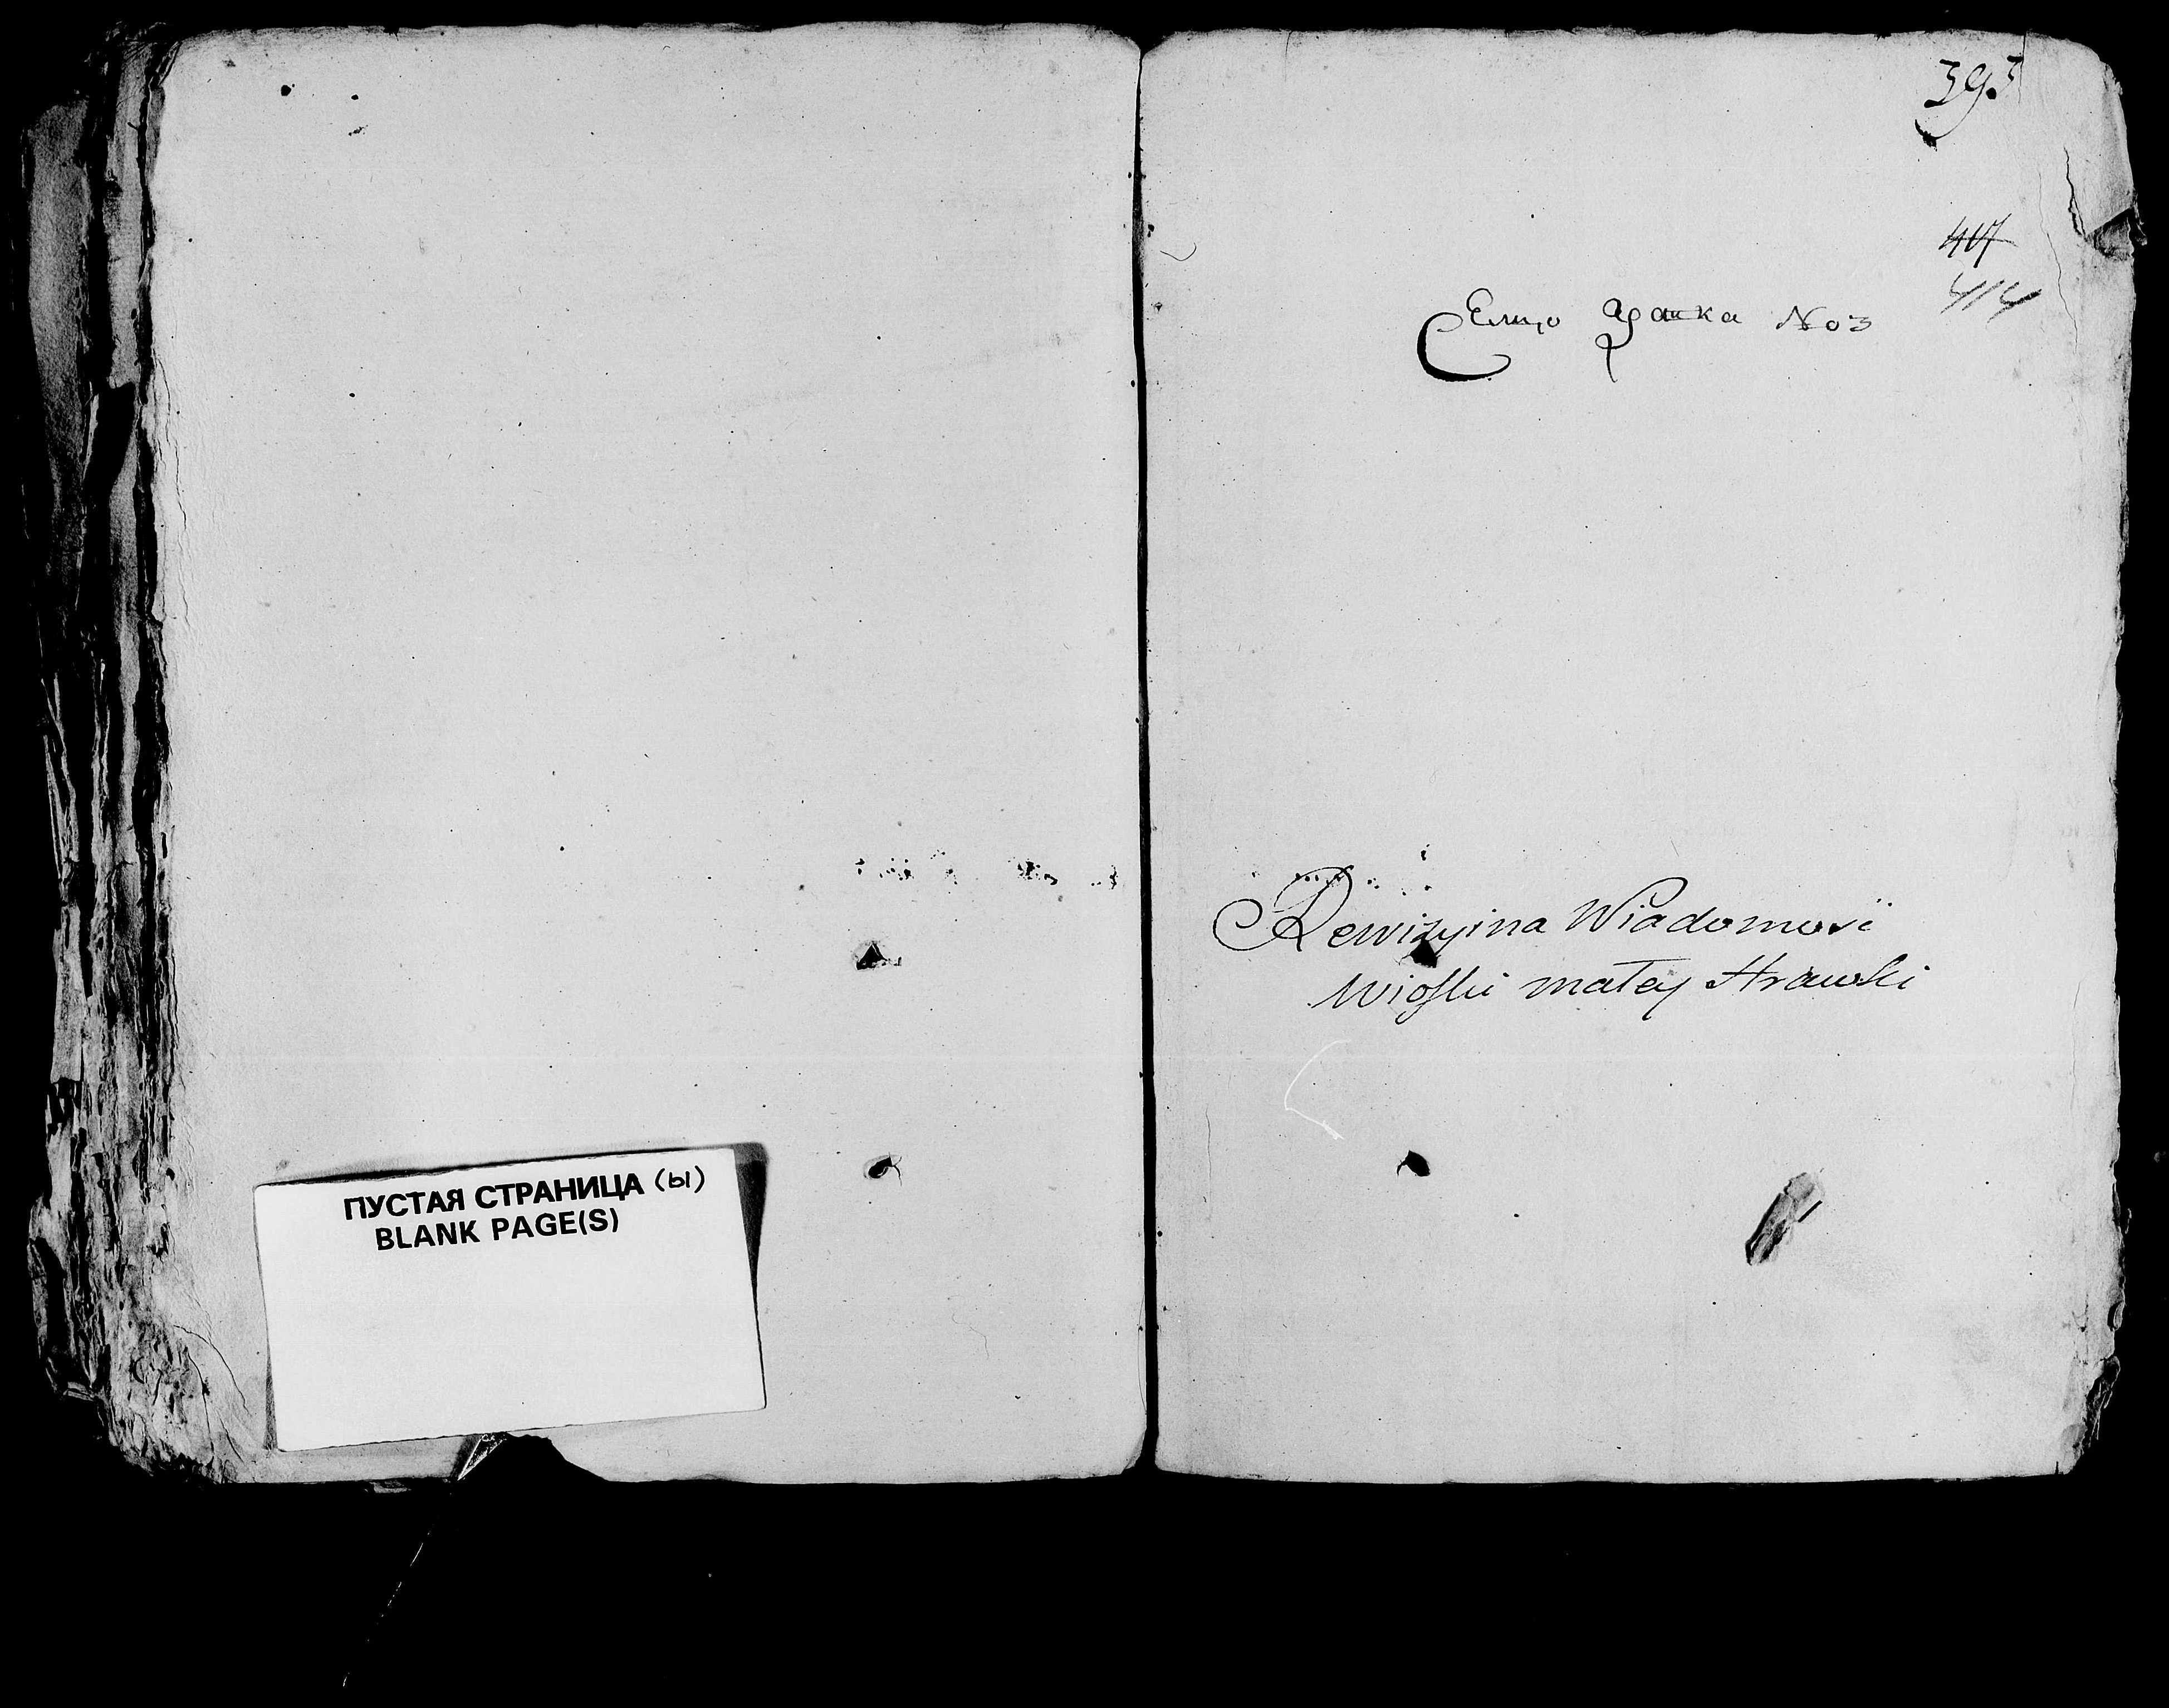 ПУСТАЯ СТРАНИЦА (Ы)
BLANK PAGE(S)
393
417
414
No 3
Rewizyina Wiadomosi
Wioski małey Hrawski